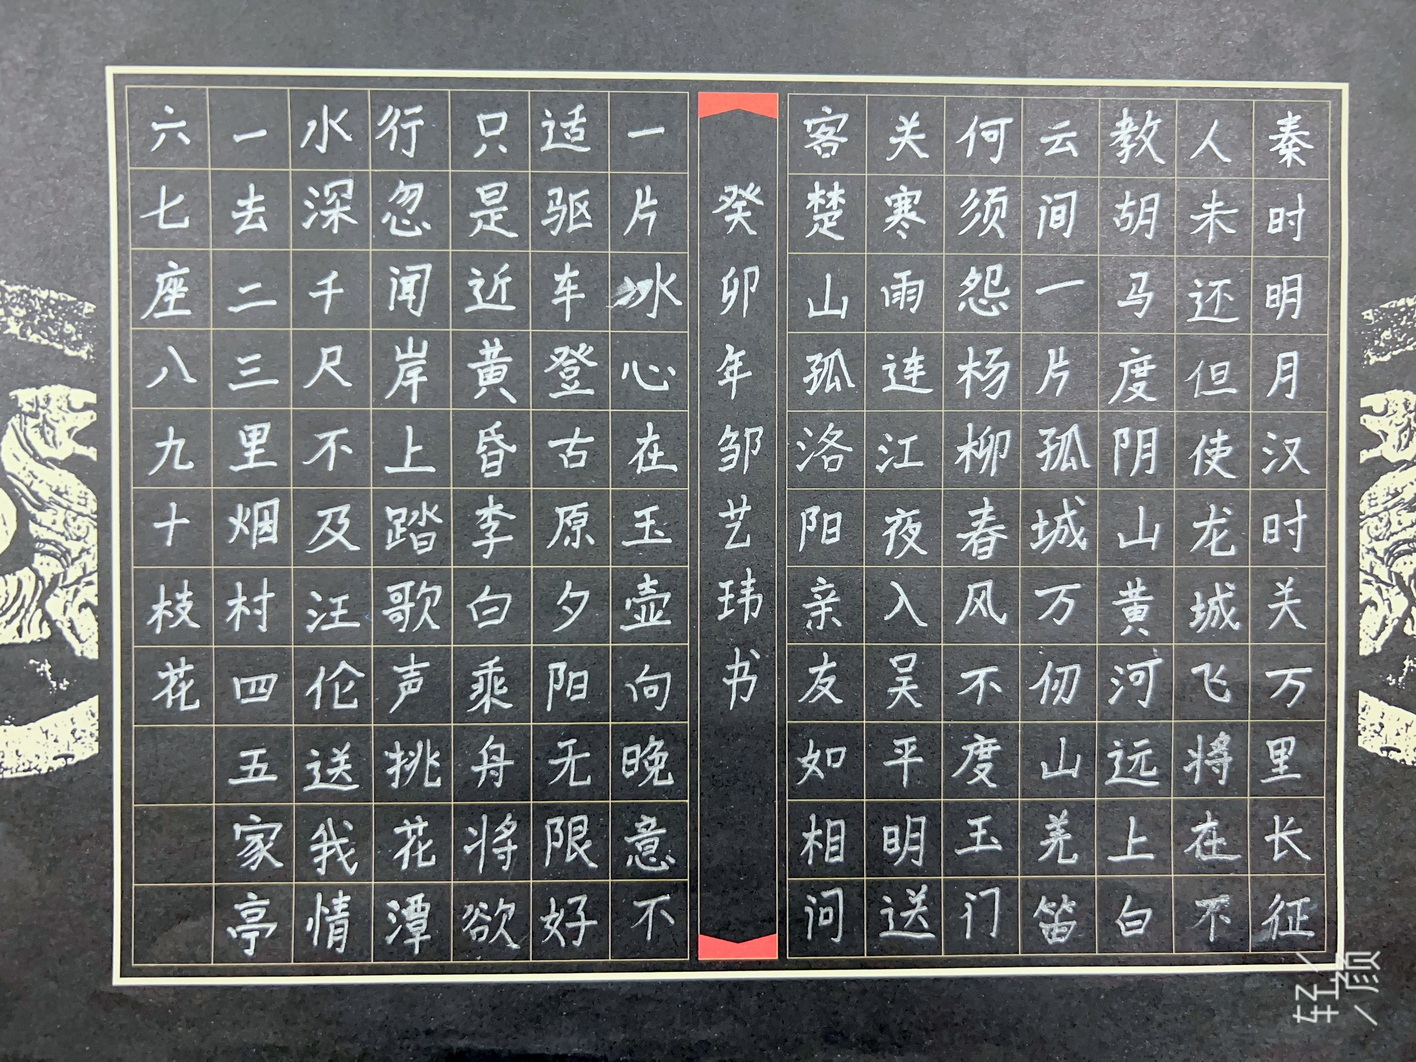 秦时明月汉时关万里长征
人未还但使龙城飞将在不
教胡马度阴山黄河远上白
云间一片孤城万仞山羌笛
何须怨杨柳春风不度玉门
关寒雨连江夜入吴平明送
客楚山孤洛阳亲友如相问
癸卯年邹艺玮书
一片冰心在玉壶向晚意不
适驱车登古原夕阳无限好
只是近黄昏李白乘舟将欲
行忽闻岸上踏歌声挑花潭
水深千尺不及汪伦送我情
一去二三里烟村四五家亭
六七座八九十枝花
轻颜